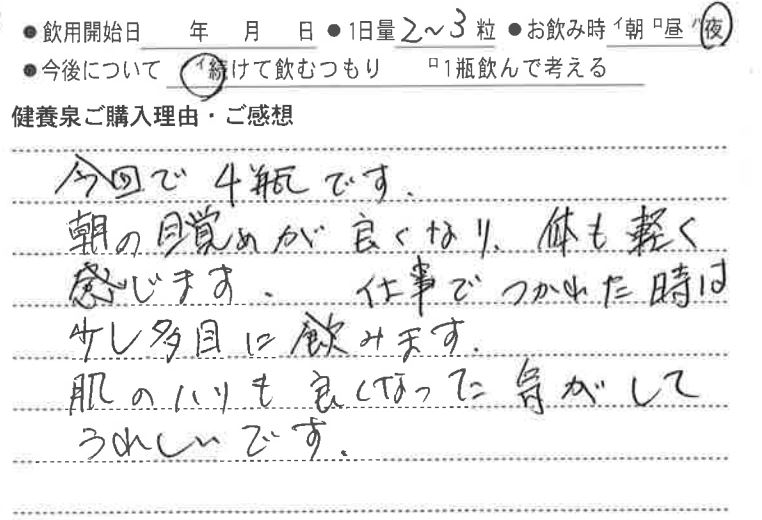 ●飲用開始日　年　月　日 ●1日量 2～3 粒 ●お飲み時 イ朝 ロ昼 ハ夜
●今後について イ続けて飲むつもり ロ1瓶飲んで考える
健養泉ご購入理由・ご感想
今回で 4瓶です.
朝の目覚めが 良くなり、体も軽く
感じます. 仕事で つかれた時は
少し多目に飲みます.
肌のハリも 良くなった気がして
うれしいです.